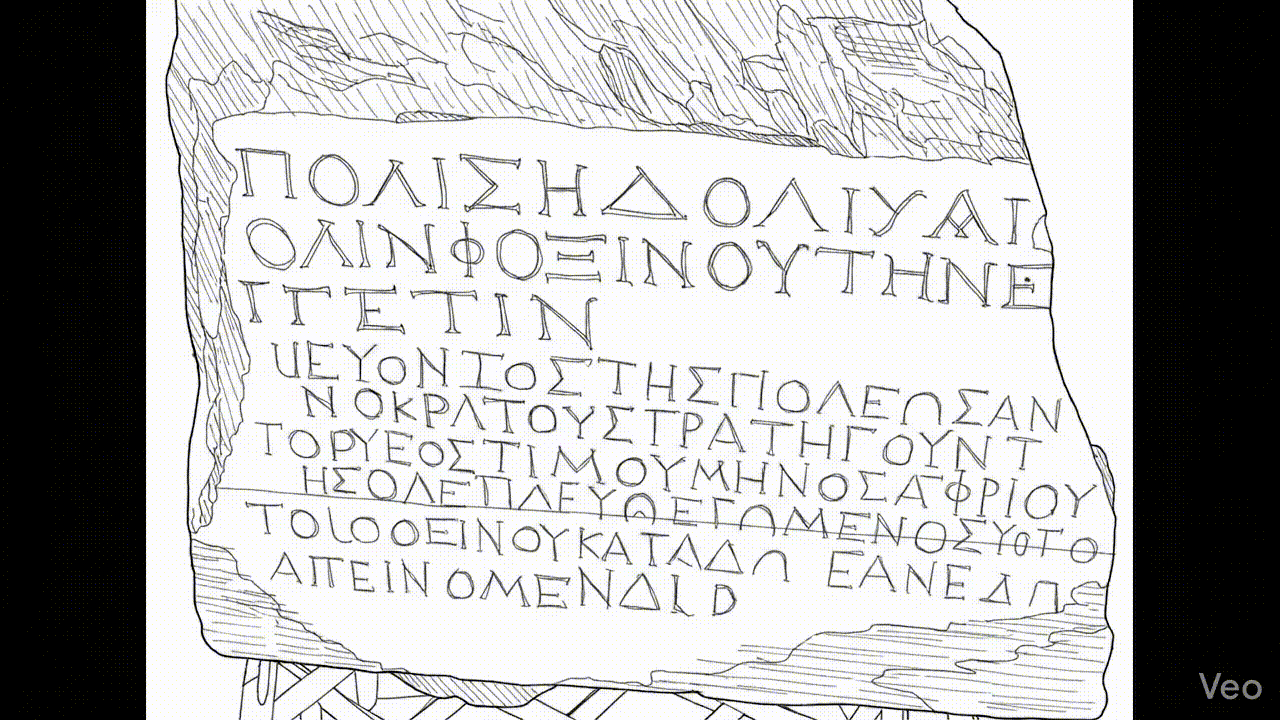 ΠΟΛΙΣΗΔΟΛΙΥΑΙ
ΟΛΙΝΦΟΞΙΝΟΥΤΗΝΕ
ΓΓΕΤΙΝ
ΕΥΟΝΙΟΣΤΗΣΓΙΟΛΕΩΣΑΝ
ΝΟΚΡΛΤΟΥΣΤΡΑΤΗΓΟΥΝΤ
ΤΟΡΥΕΟΣΤΙΜΟΥΜΗΝΟΣΑΦΡΙΟΥ
ΗΣΟΛΕΠΛΕΥΩΕΓΩΜΕΝΟΣΥΘΤΟ
ΤΟΙΟΟΕΙΝΟΥΚΑΤΑΔΩ ΕΑΝΕΔΠΣ
ΑΠΕΙΝΟΜΕΝΔΙD
Veo